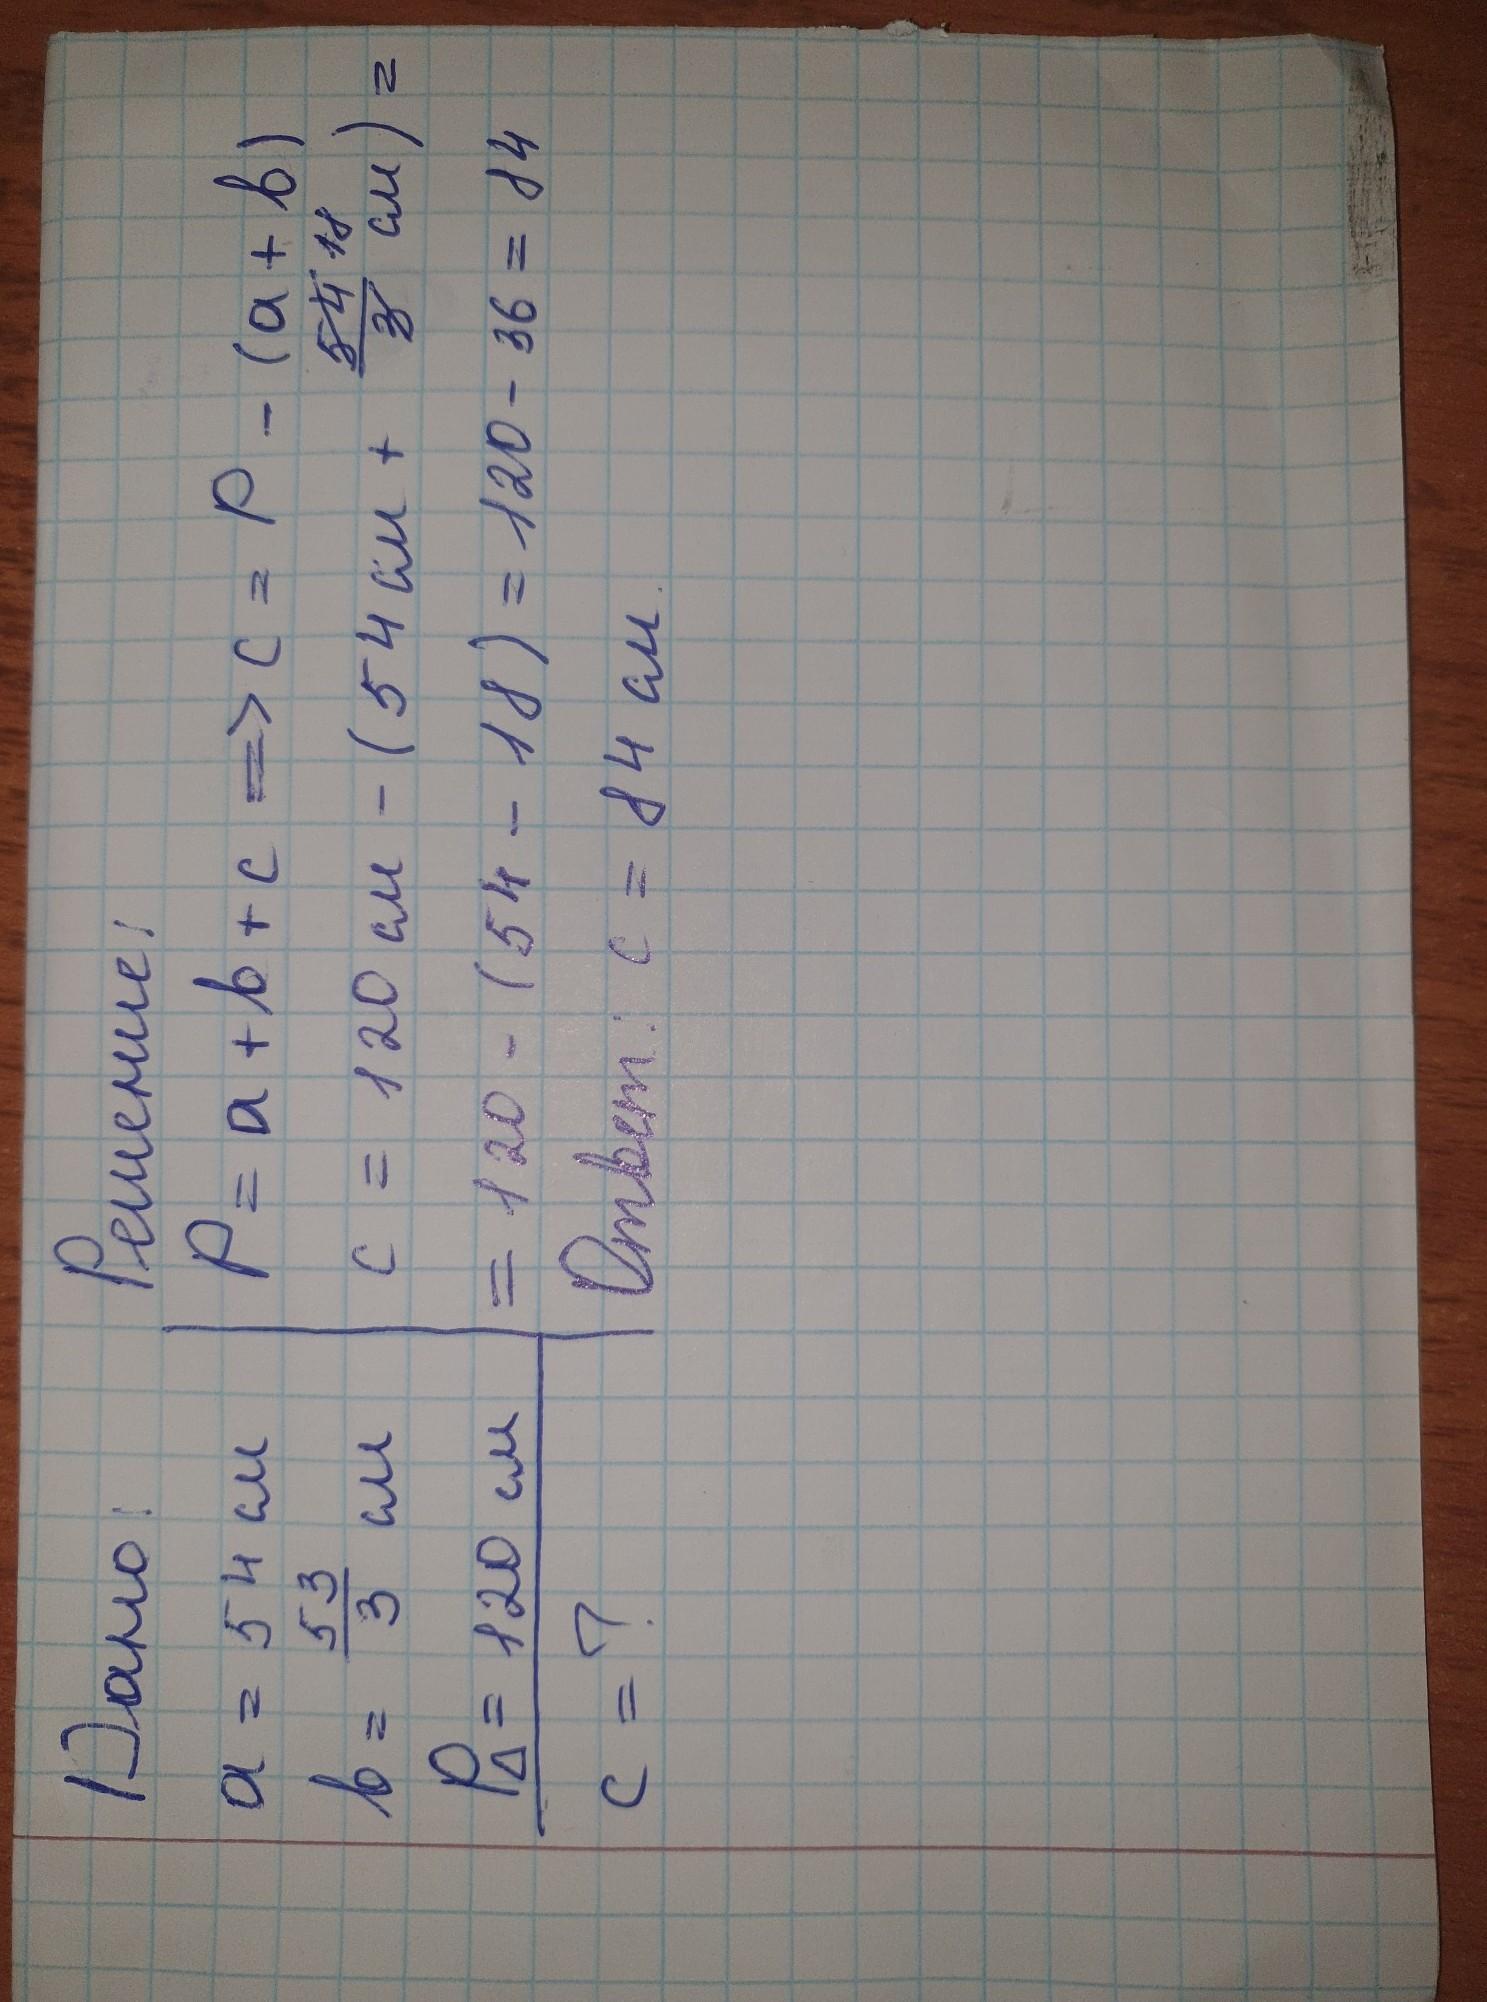 Дано:
a = 54 см
b = 53/3 см
P△ = 120 см
c = ?
Решение:
P = a + b + c => c = P - (a + b)
c = 120 см - (54 см + 54/3 18 см) =
= 120 - (54 - 18) = 120 - 36 = 84
Ответ: c = 84 см.